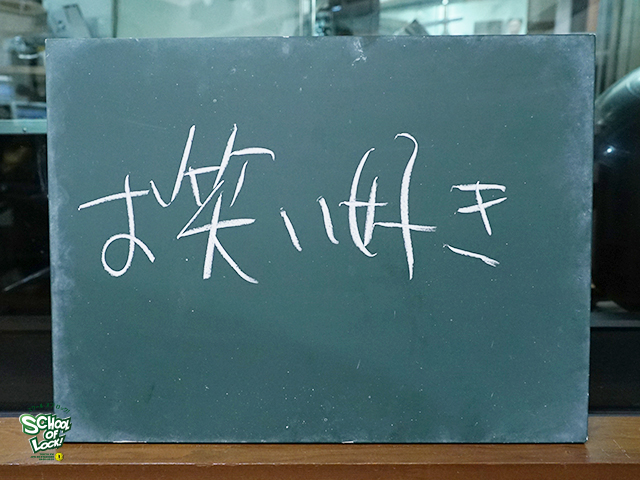 お笑い好き
SCHOOL OF LOCK!